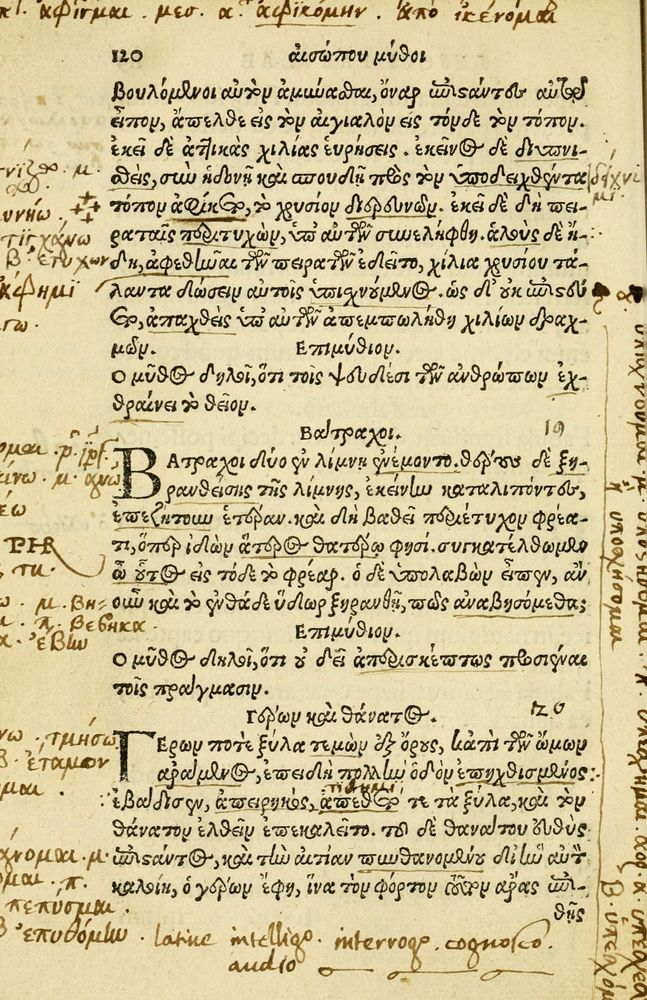 κι. ἀφῖγμαι. μεσ. α. ἀφικόμην. ἀπὸ
120 αἰσώπου μῦθοι
βουλόμενοι αὐτὸν ἀμύναςθαι, ὄναρ ἐπιστάντες αὐτῷ
εἶπον, ἄπελθε εἰς τὸν αἰγιαλὸν εἰς τόνδε τὸν τόπον.
ἐκεῖ δὲ ἀττικὰς χιλίας εὑρήσεις. ἐκεῖνος δὲ διυπνι-
σθεὶς, σὺν ἡδονῇ καὶ σπουδῇ πρὸς τὸν ὑποδειχθέντα
τόπον ἀφίκετο, τὸ χρυσίον διερευνῶν. ἐκεῖ δὲ δὴ πει-
ραταῖς περιτυχὼν, ὑπ' αὐτῶν συνελήφθη. ἁλοὺς δὲ ἤ-
δη, ἀφεθῆναι τῶν πειρατῶν ἐδεῖτο, χίλια χρυσίου τά-
λαντα δώσειν αὐτοῖς ὑπιχνούμενος. ὡς δ' οὐκ ἐπιστεύε-
το, ἀπαχθεὶς ὑπ' αὐτῶν ἀπεμπωλήθη χιλίων δραχ-
μῶν. Ἐπιμύθιον.
Ὁ μῦθος δηλοῖ, ὅτι τοῖς ψευδέσι τῶν ἀνθρώπων ἐχ-
θραίνει τὸ θεῖον.
Βάτραχοι. 19
ΒΑτραχοι δύο ἐν λίμνῃ ἐνέμοντο. θέρους δὲ ξη-
ρανθείσης τῆς λίμνης, ἐκείνην καταλιπόντες,
ἐπεζήτουν ἑτέραν. καὶ δὴ βαθεῖ περιέτυχον φρέα-
τι, ὅπερ ἰδὼν ἅτερος θατέρῳ φησί. συγκατέλθωμεν
ὦ οὗτος εἰς τόδε τὸ φρέαρ. ὁ δὲ ὑπολαβὼν εἶπεν, ἂν
οὖν καὶ τὸ ἐνθάδε ὕδωρ ξηρανθῇ, πῶς ἀναβησόμεθα;
Ἐπιμύθιον.
Ὁ μῦθος δηλοῖ, ὅτι οὐ δεῖ ἀπερισκέπτως προσιέναι
τοῖς πράγμασιν.
Γέρων καὶ θάνατος. 20
ΓΕρων ποτὲ ξύλα τεμὼν ἐξ ὄρους, κἀπὶ τῶν ὤμων
ἀράμενος, ἐπειδὴ πολλὴν ὁδὸν ἐπηχθισμένος
ἐβάδισεν, ἀπειρηκὼς, ἀπέθετό τε τὰ ξύλα, καὶ τὸν
θάνατον ἐλθεῖν ἐπεκαλεῖτο. τοῦ δὲ θανάτου εὐθὺς
ἐπιστάντος, καὶ τὴν αἰτίαν πυνθανομένου δι' ἣν αὐτὸν
καλοίη, ὁ γέρων ἔφη, ἵνα τὸν φόρτον τοῦτον ἄρας ἐπι-
θῇς
ἐπυθόμην. latine intelligo. interrogo. cognosco.
audio
τμήσω
ἔταμον
πέπυσμαι.